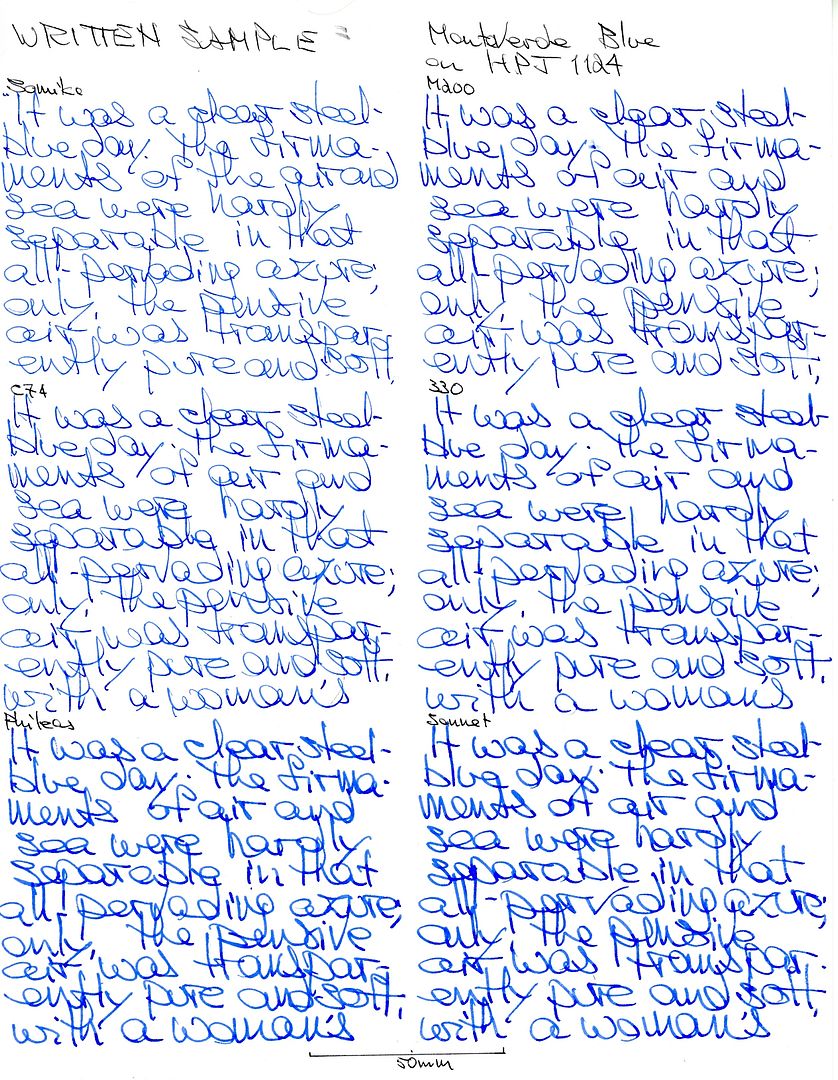 WRITTEN SAMPLE =
Squike
It was a clear steel-
blue day. The firma-
ments of the air and
sea were hardly
separable in that
all-pervading azure;
only, the pensive
air was transpar-
ently pure and soft,
C74
It was a clear steel-
blue day. The firma-
ments of air and
sea were hardly
separable in that
all-pervading azure;
only, the pensive
air was transpar-
ently pure and soft,
with a woman's
Phileas
It was a clear steel-
blue day. The firma-
ments of air and
sea were hardly
separable in that
all-pervading azure;
only, the pensive
air was transpar-
ently pure and soft,
with a woman's
MontVerde Blue
on HPJ 1124
M200
It was a clear, steel-
blue day. The firma-
ments of air and
sea were hardly
separable in that
all-pervading azure;
only, the pensive
air was transpar-
ently pure and soft,
330
It was a clear steel-
blue day. The firma-
ments of air and
sea were hardly
separable in that
all-pervading azure;
only, the pensive
air was transpar-
ently pure and soft,
with a woman's
Sonnet
It was a clear steel-
blue day. The firma-
ments of air and
sea were hardly
separable in that
all-pervading azure;
only, the pensive
air was transpar-
ently pure and soft,
with a woman's
50mm